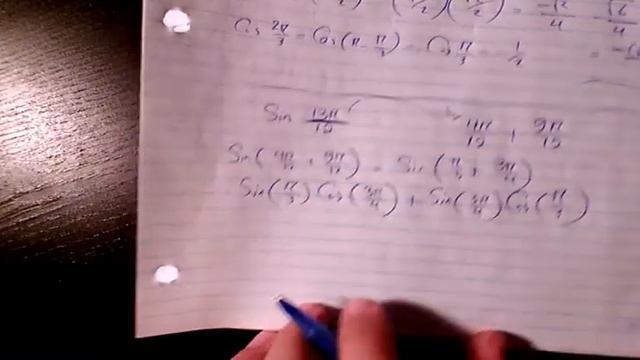 = -√2/4 √6/4
Cos 2π/3 = Cos(π - π/3) = Cos π/3 - 1/2
Sin 13π/12 4π/12 + 9π/12
Sin(4π/12 + 9π/12) = Sin(π/3 + 3π/4)
Sin(π/3) Cos(3π/4) + Sin(3π/4) Cos(π/3)